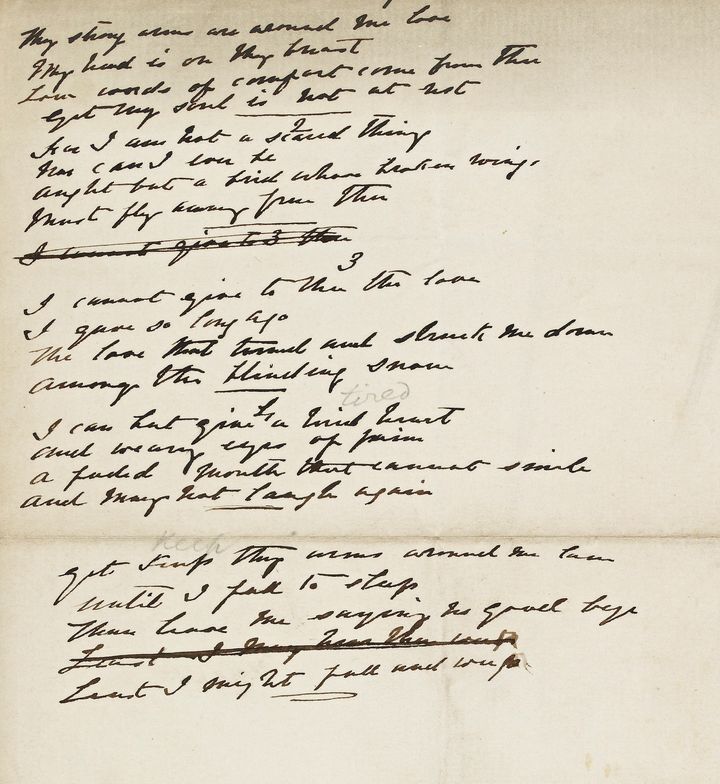 Thy strong arms are around me love
My head is on thy breast
Low words of comfort come from thee
yet my soul is not at rest
2
For I am not a scared thing
Nor can I ever be
aught but a bird whose broken wing,
Must fly away from thee
I cannot give to 3 thee
3
I cannot give to thee the love
I gave so long ago
The love that turned and struck me down
amongs the blinding snow
tired
I can but give 4 a tired heart
and weary eyes of pain
a faded mouth that cannot smile
and may not laugh again
keep
yet keep thy arms around me love
until I fall to sleep
Then leave me saying no good bye
Least I may hear thee weep
Least I might fall and weep